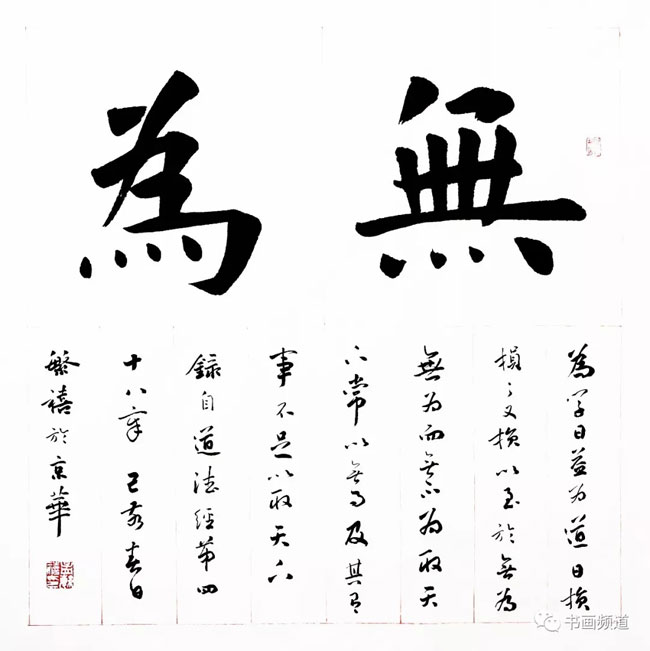 無為
為学日益为道日損
損之又損以至於無為
無为而無不为取天
下常以無事及其有
事不足以取天下
錄自道德經第四
十八章 己亥春日
繁禧於京華
书画频道